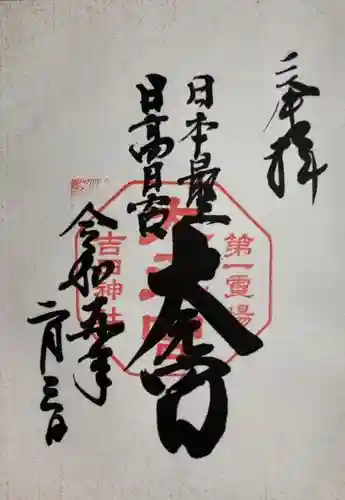 奉拝
日本最上
日高日宮
大元宮
令和五年
二月三日
第一霊場
大元宮
吉田神社